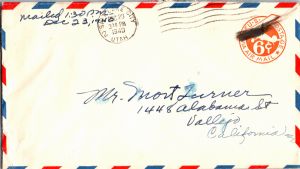 Mailed 1:30 P.M.
Dec 23, 1940
UTAH
1940
6¢
AIR MAIL
Mr. Mort Turner
1448 Alabama St
Vallejo
California